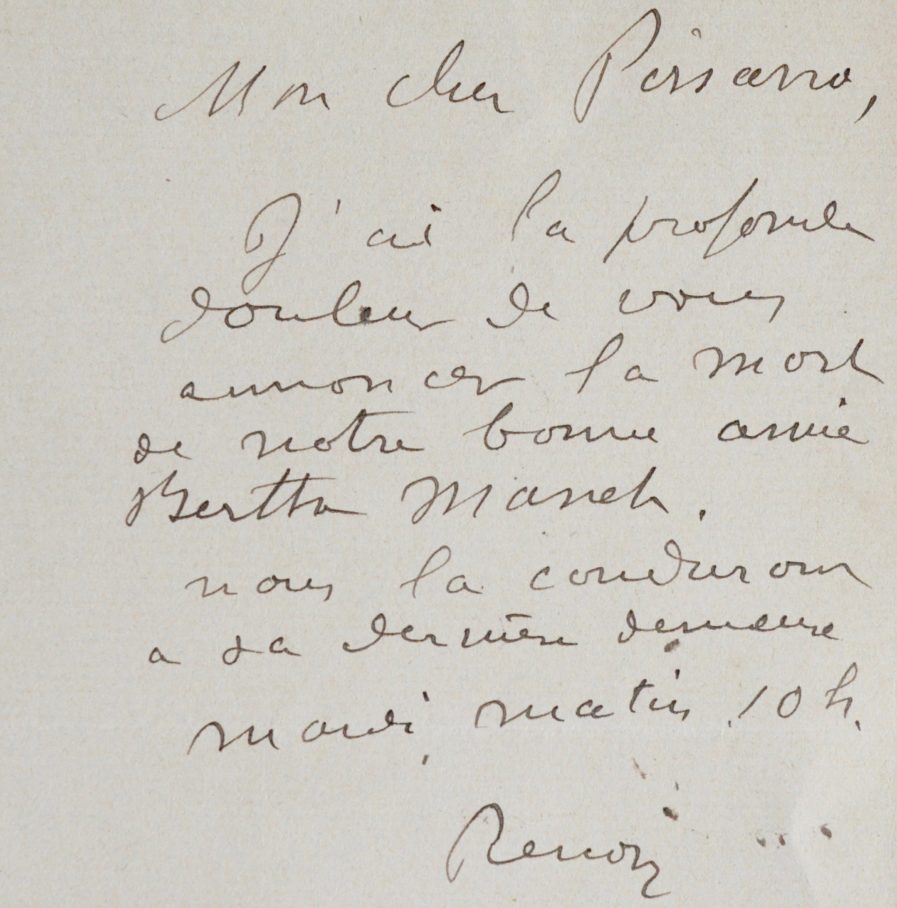 Mon cher Pissarro,
J'ai la profonde
douleur de vous
annoncer la mort
de notre bonne amie
Berthe Manet.
nous la conduirons
a sa dernière demeure
mardi, matin 10 h.
Renoir